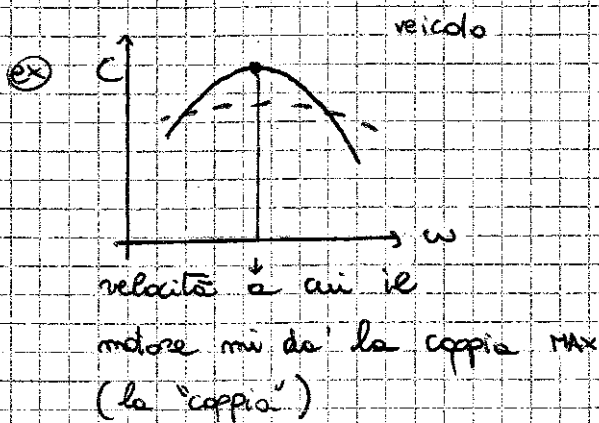 veicolo
ex
C
ω
velocità a cui il
motore mi da' la coppia MAX
(la "coppia")